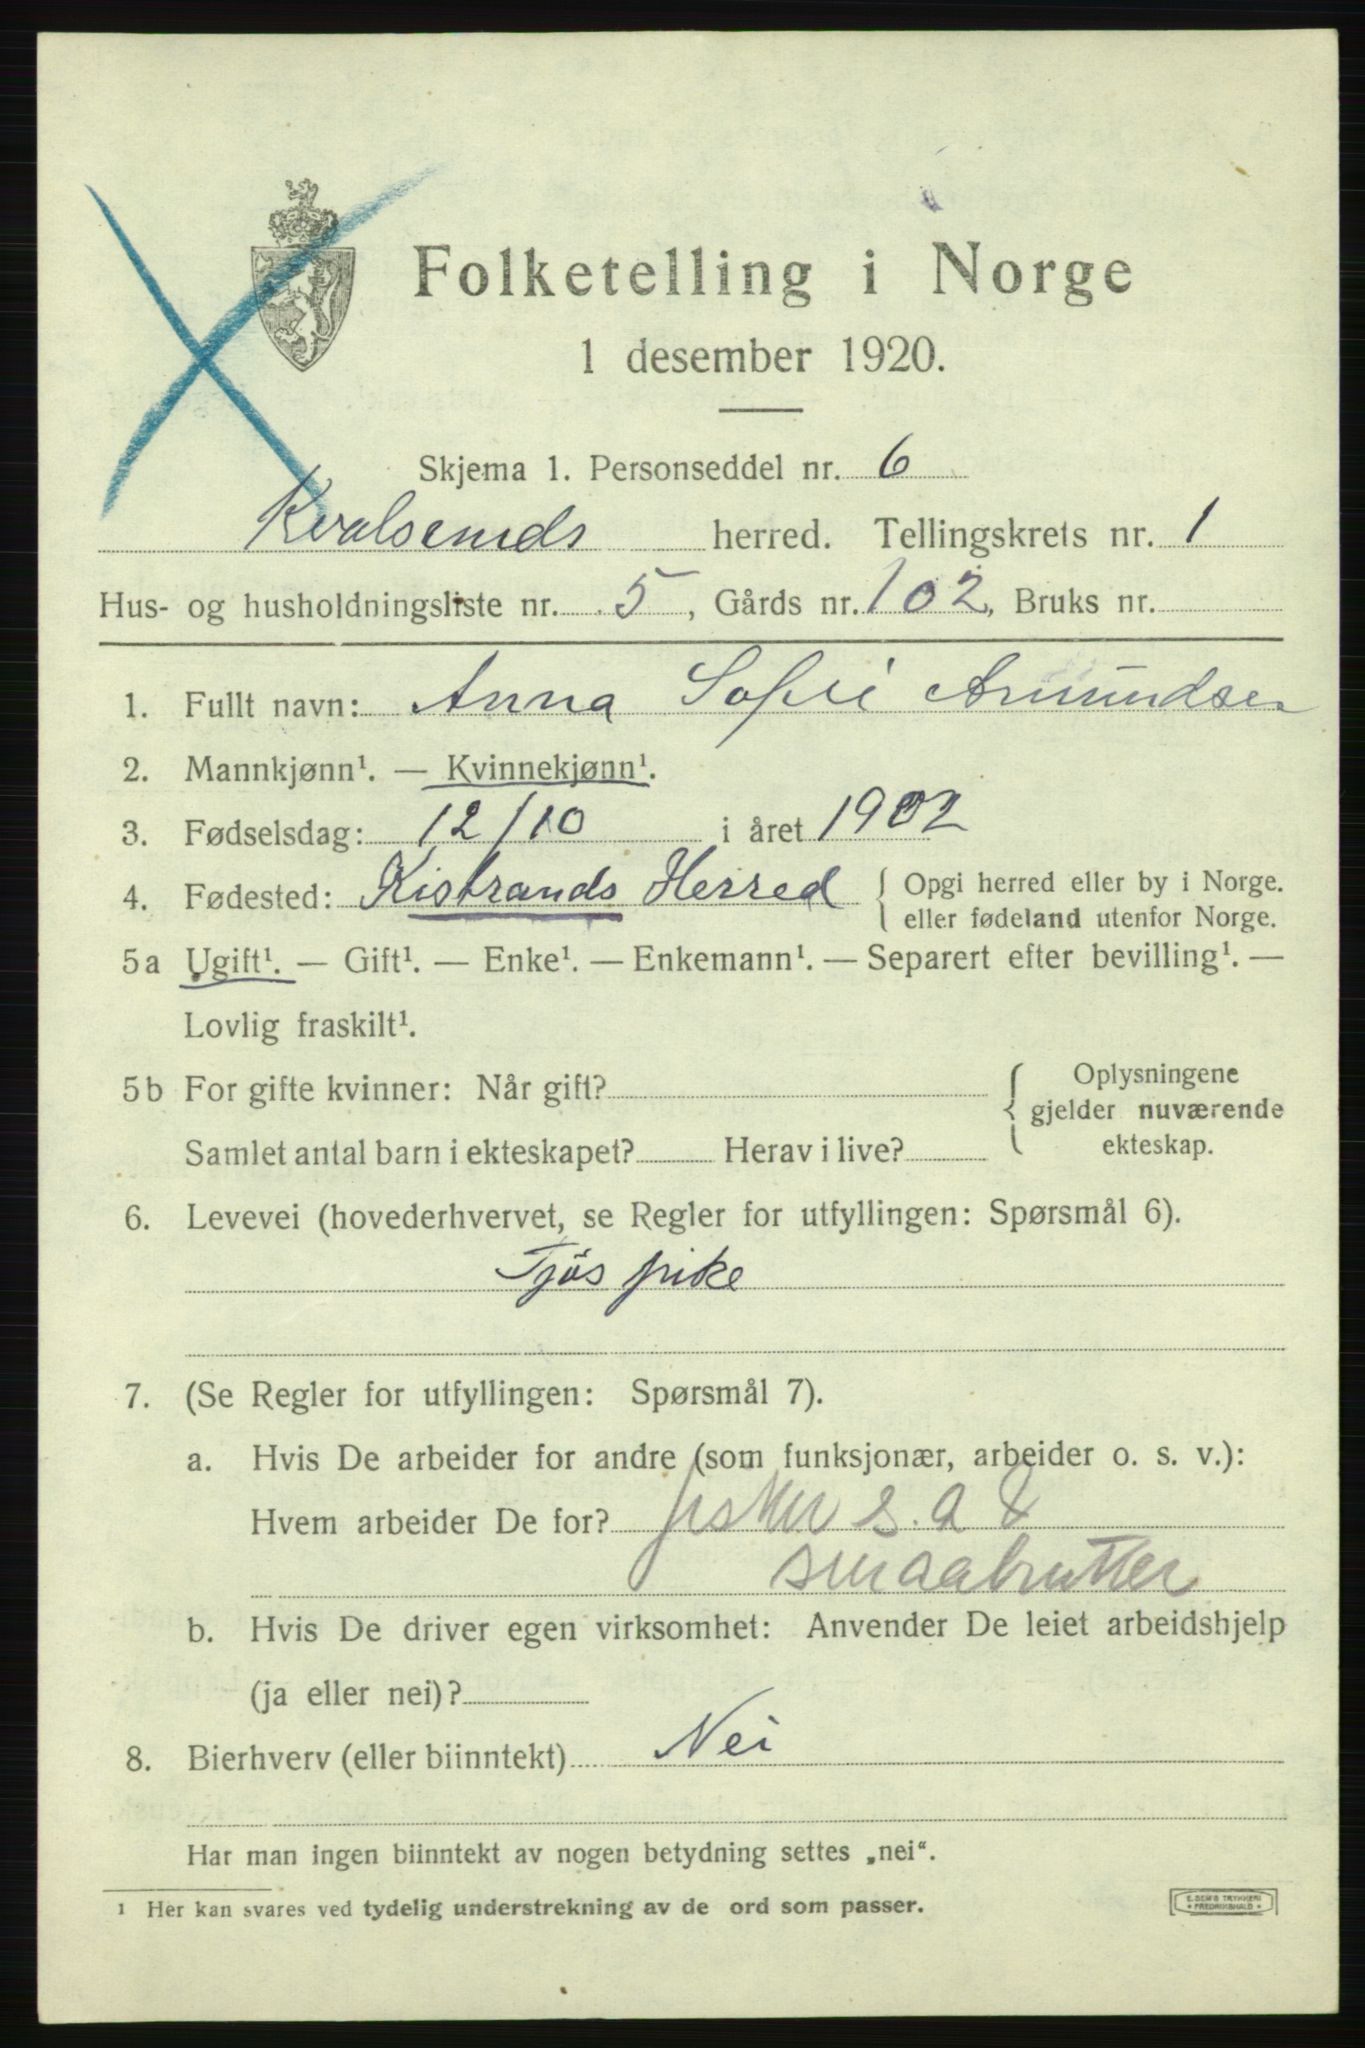 Folketelling i Norge
1 desember 1920.
Skjema 1. Personseddel nr. 6
Kvalsunds herred. Tellingskrets nr. 1
Hus- og husholdningsliste nr. 5, Gårds nr. 102, Bruks nr.
1. Fullt navn: Anna Sofie Amundsen
2. Mannkjønn¹. — Kvinnekjønn¹.
3. Fødselsdag: 12/10 i året 1902
4. Fødested: Kistrands Herred { Opgi herred eller by i Norge.
eller fødeland utenfor Norge.
5a Ugift¹. — Gift¹. — Enke¹. — Enkemann¹. — Separert efter bevilling¹. —
Lovlig fraskilt¹.
5b For gifte kvinner: Når gift? { Oplysningene
gjelder nuværende
ekteskap.
Samlet antal barn i ekteskapet? Herav i live?
6. Levevei (hovederhvervet, se Regler for utfyllingen: Spørsmål 6).
Tjös pike
7. (Se Regler for utfyllingen: Spørsmål 7).
a. Hvis De arbeider for andre (som funksjonær, arbeider o. s. v.):
Hvem arbeider De for? fisker s. a &
smaabruker
b. Hvis De driver egen virksomhet: Anvender De leiet arbeidshjelp
(ja eller nei)?
8. Bierhverv (eller biinntekt) Nei
Har man ingen biinntekt av nogen betydning settes „nei“.
¹ Her kan svares ved tydelig understrekning av de ord som passer.
E. SEM'S TRYKKERI
* FREDRIKSHALD *